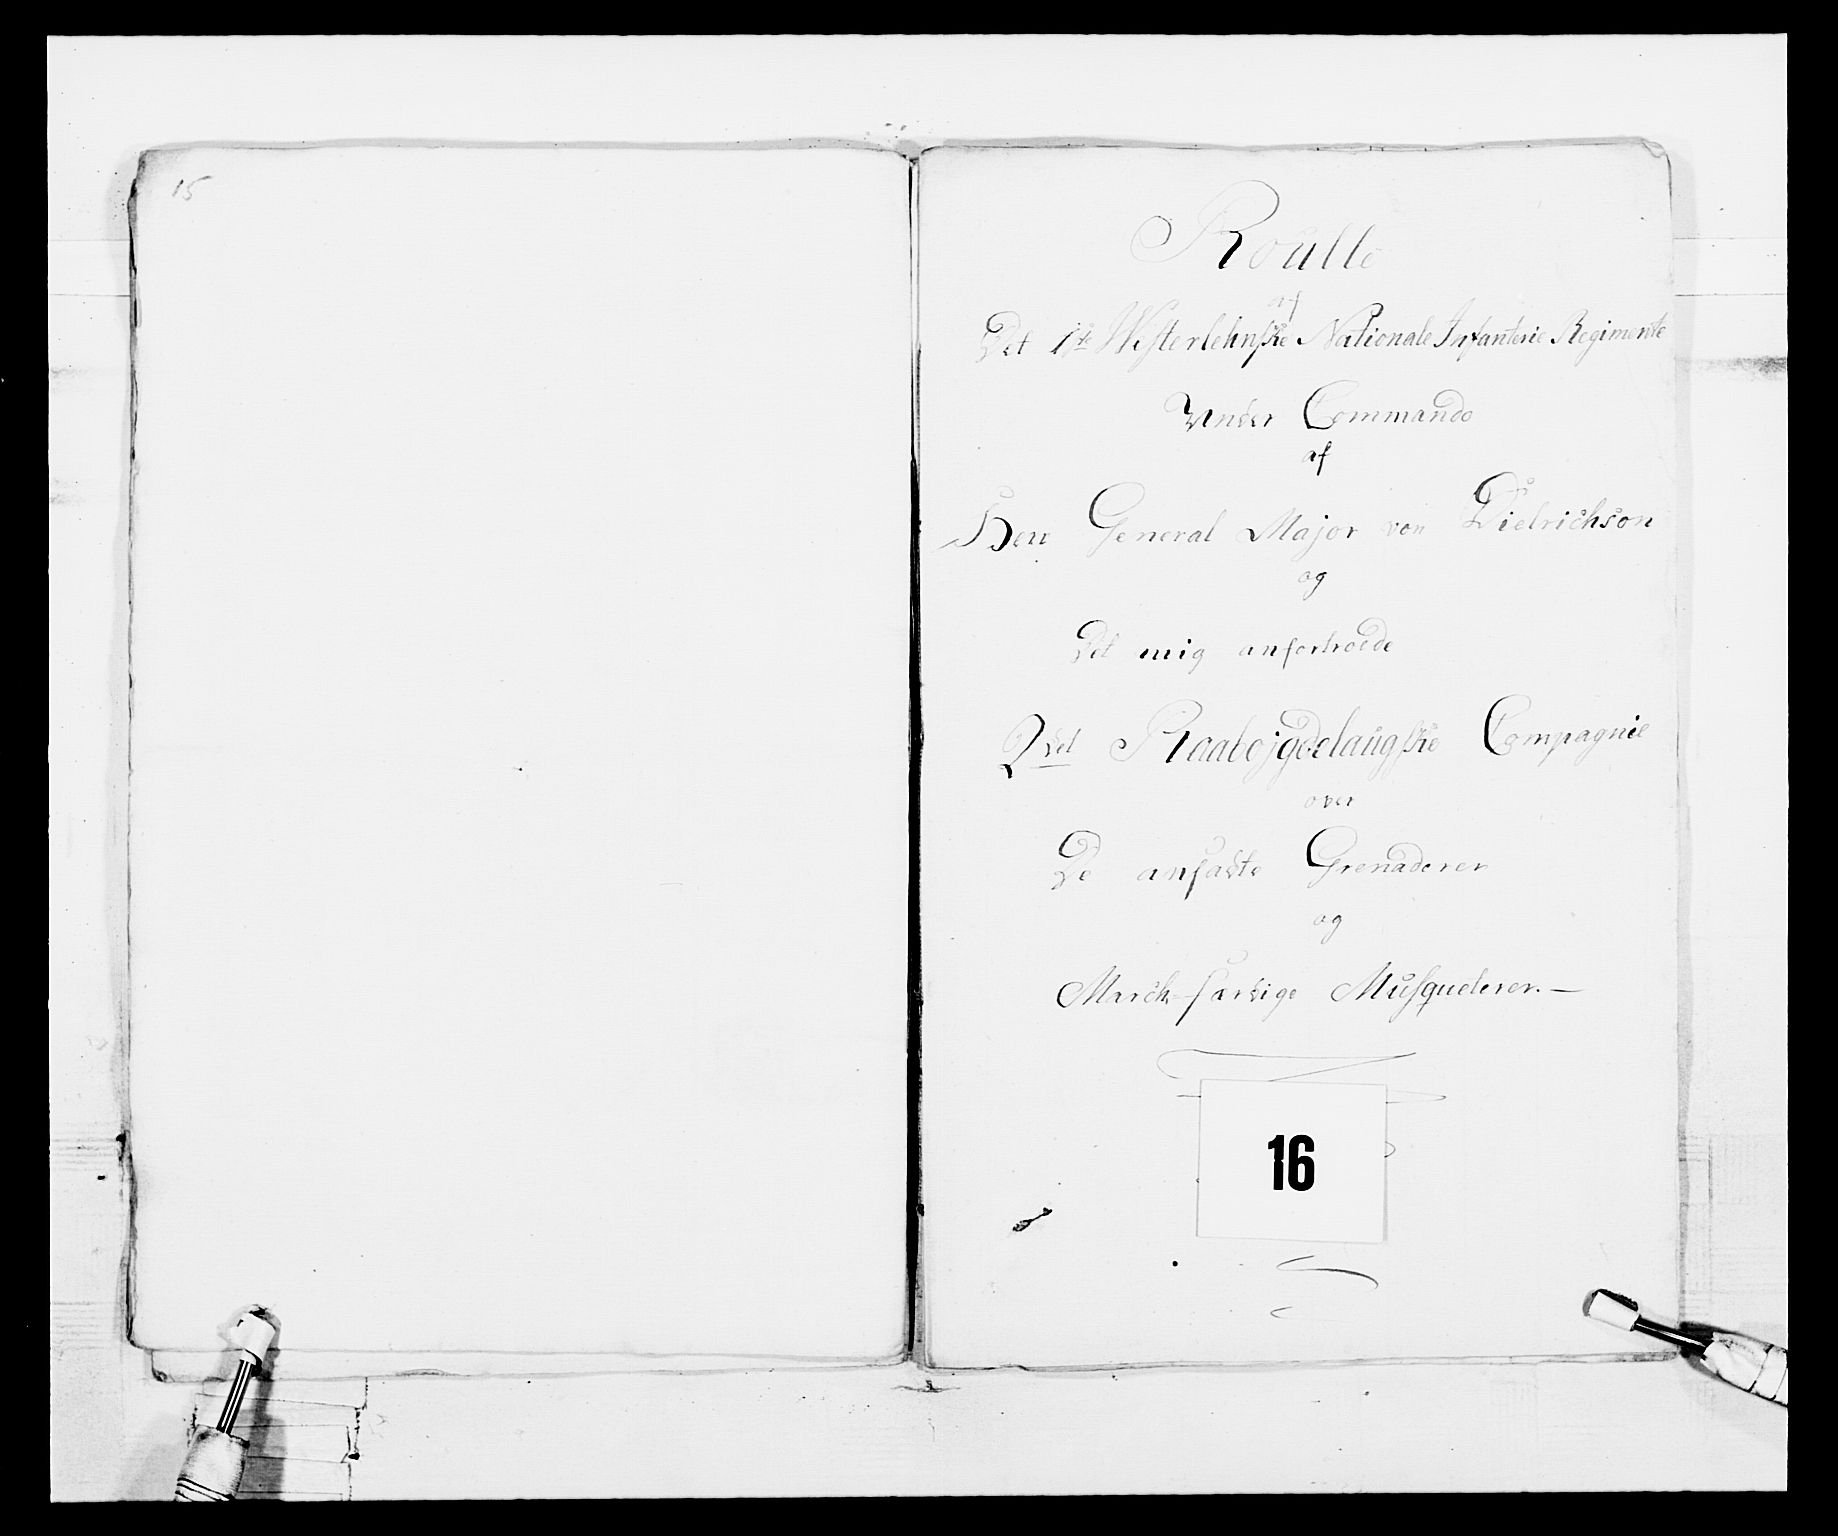 15
Roulle
af
Det 1ste Westerlehnske Nationale Infanterie Regimente
Under Commando
af
Herr General Major von Dietrichson
og
Det mig anfortroede
2det Raabojgdelaugske Compagnie
over
De ansatte Grenaderer
og
March-færdige Musqueterer.—
16